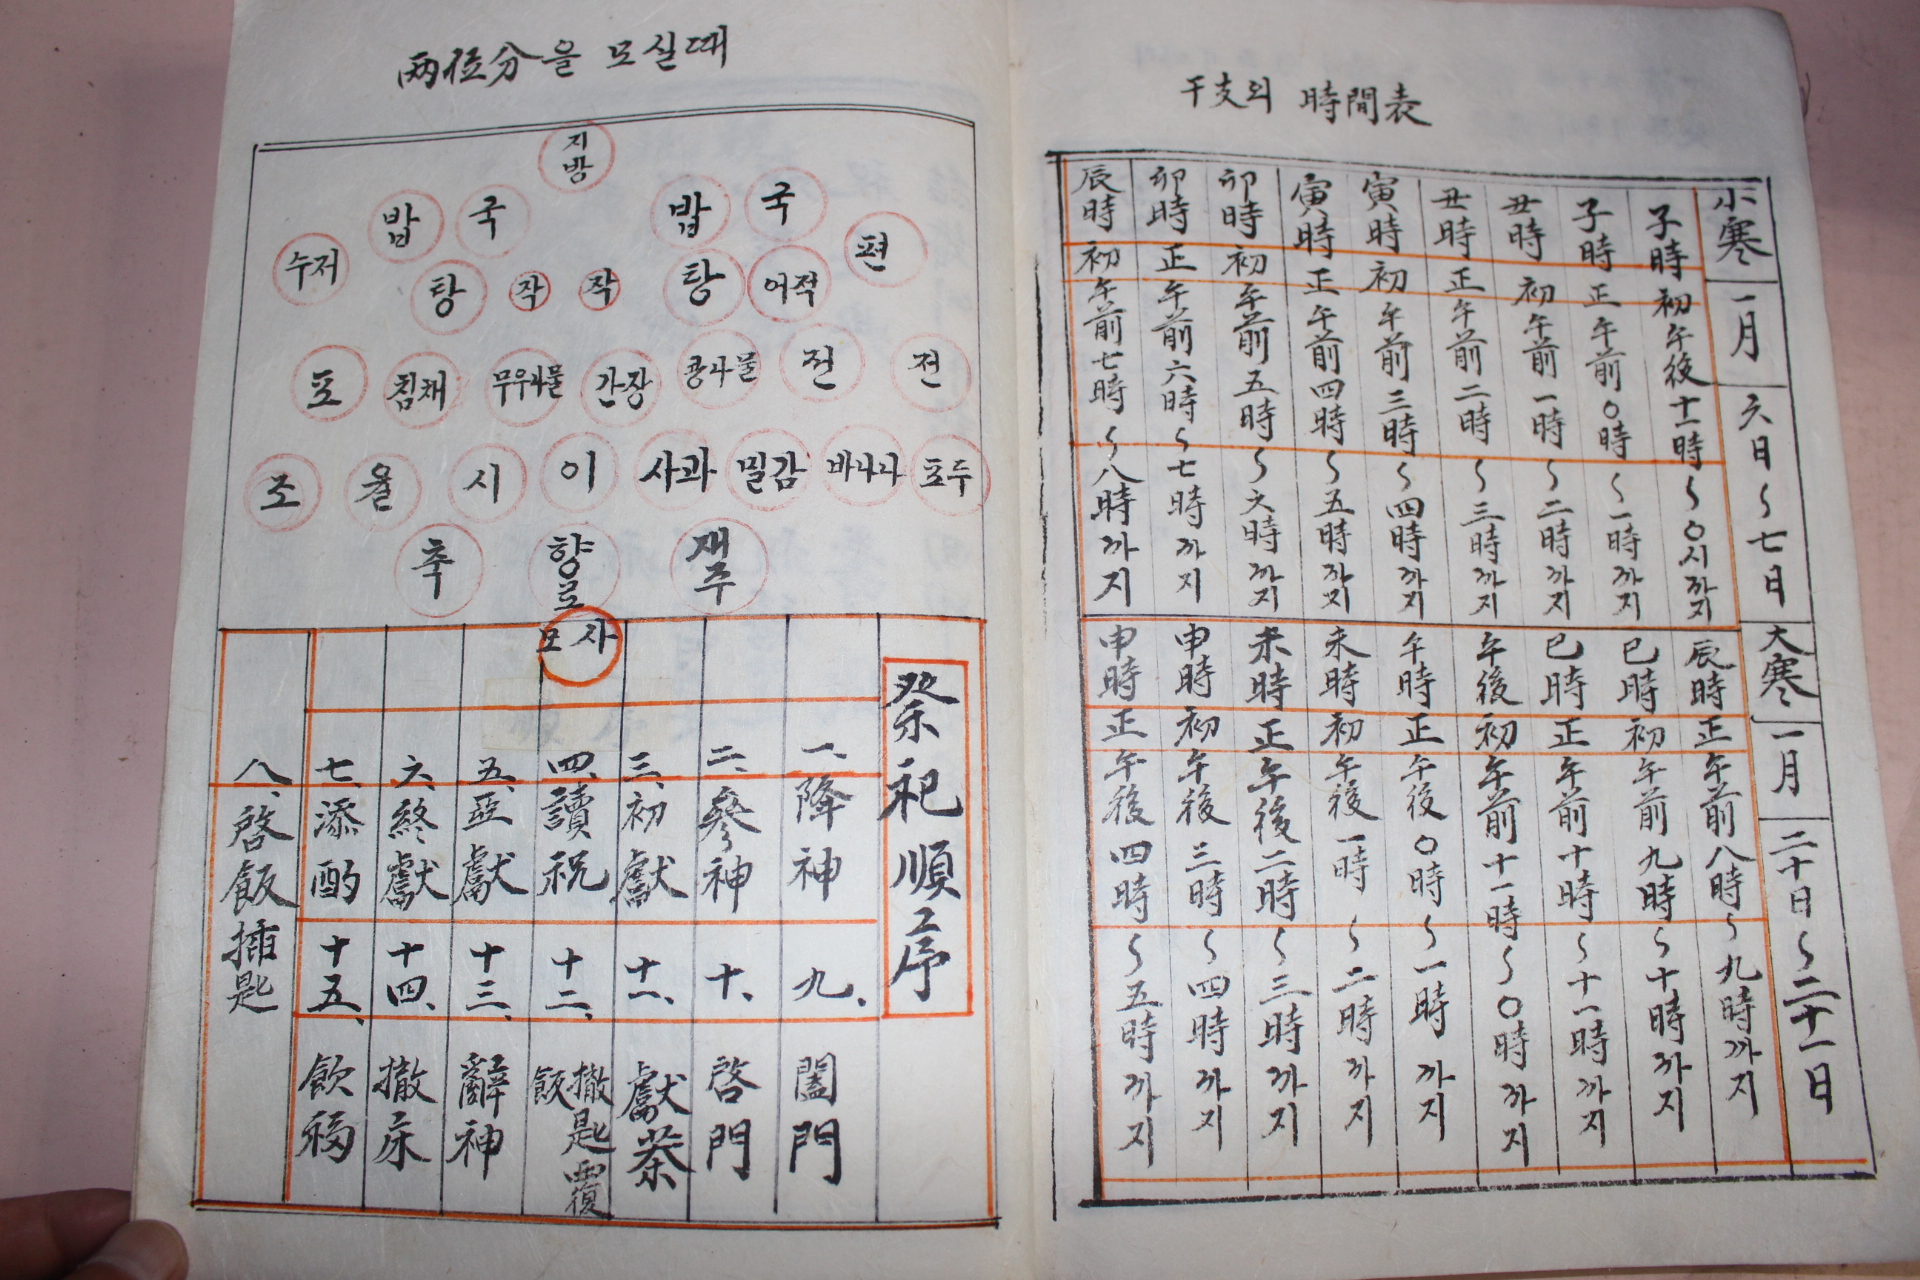 兩位分을 모실때
지방
밥 국 밥 국
수저 편
탕 작 작 탕 어적
포 침채 무우나물 간장 콩나물 전 전
조 율 시 이 사과 밀감 바나나 포두
축 향로 재주
모사
祭祀順序
一、降神
二、參神
三、初獻
四、讀祝
五、亞獻
六、終獻
七、添酌
八、啓飯揷匙
九、闔門
十、啓門
十一、獻茶
十二、撤匙覆飯
十三、辭神
十四、撤床
十五、飮福
干支의 時間表
小寒 一月 六日~七日
大寒 一月 二十日~二十一日
子時 初 午後十一時~0시까지
子時 正 午前0時~一時까지
丑時 初 午前一時~二時까지
丑時 正 午前二時~三時까지
寅時 初 午前三時~四時까지
寅時 正 午前四時~五時까지
卯時 初 午前五時~六時까지
卯時 正 午前六時~七時까지
辰時 初 午前七時~八時까지
辰時 正 午前八時~九時까지
巳時 初 午前九時~十時까지
巳時 正 午前十時~十一時까지
午後 初 午前十一時~0時까지
午時 正 午後0時~一時까지
未時 初 午後一時~二時까지
未時 正 午後二時~三時까지
申時 初 午後三時~四時까지
申時 正 午後四時~五時까지